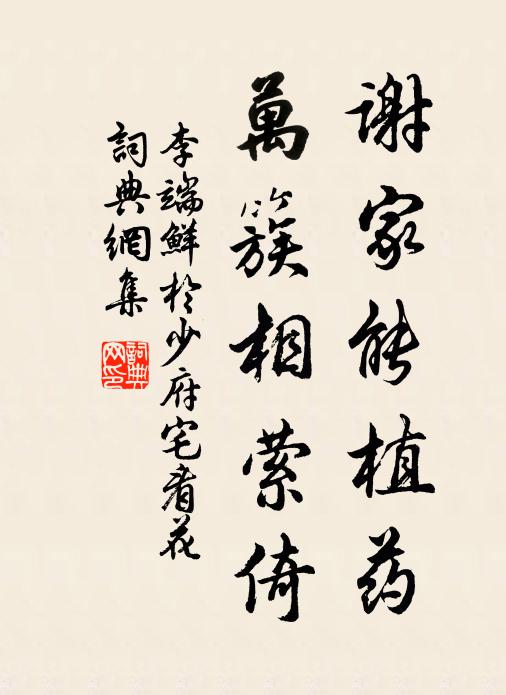 謝家能植药
萬簇相縈倚
李端鮮於少府宅看花
詞典網集
詞典網印